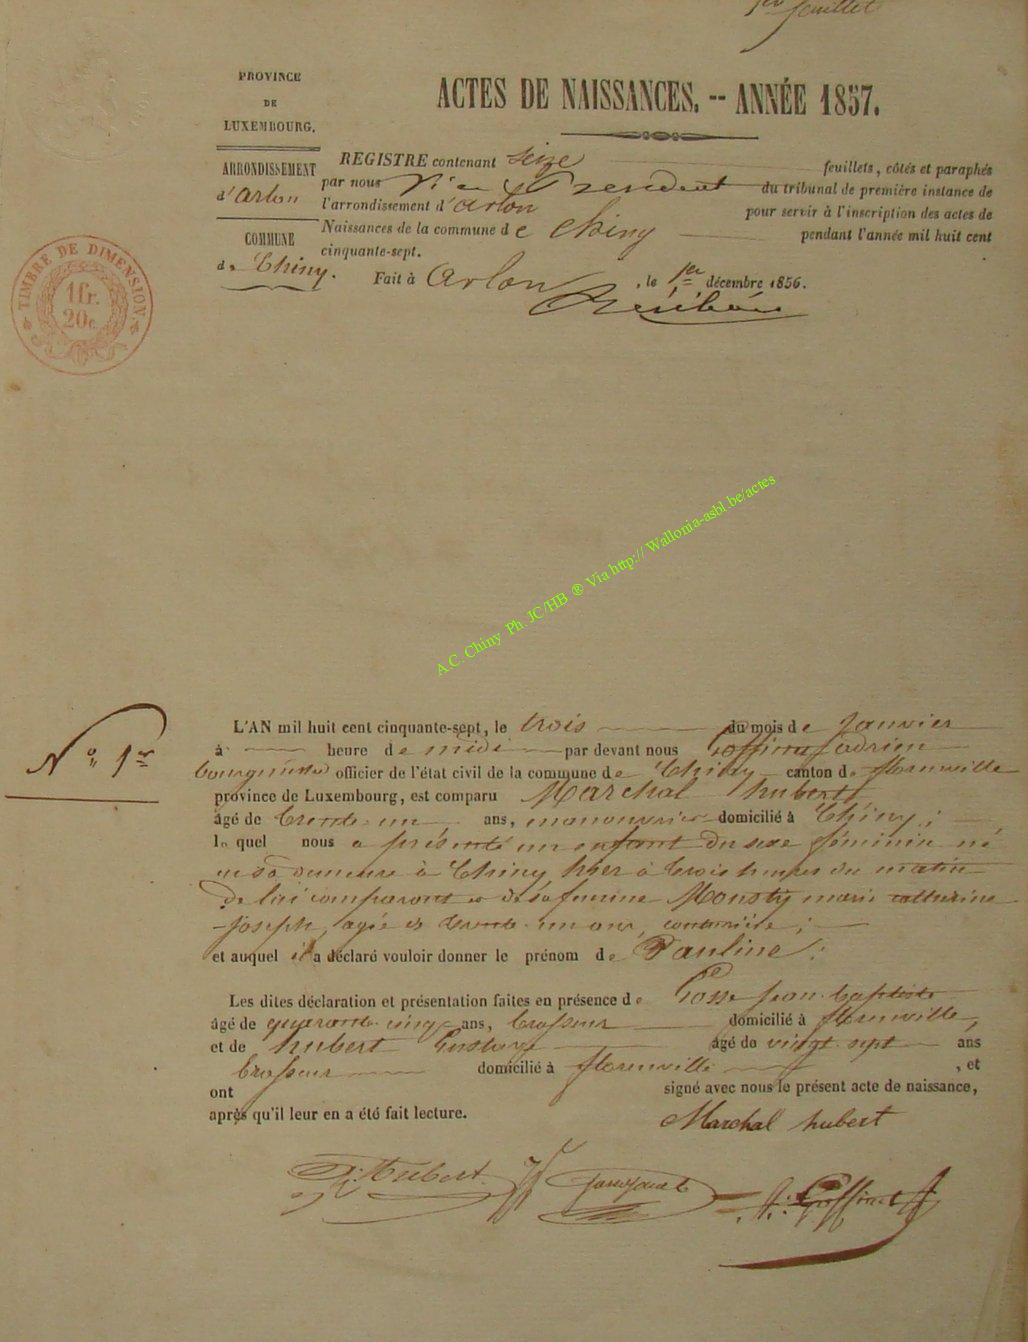 1er feuillet
PROVINCE
DE
LUXEMBOURG.
ARRONDISSEMENT
d'Arlon
COMMUNE
de Chiny.
ACTES DE NAISSANCES. -- ANNÉE 1857.
REGISTRE contenant seize feuillets, côtés et paraphés
par nous Vice Président du tribunal de première instance de
l'arrondissement d'Arlon pour servir à l'inscription des actes de
Naissances de la commune de Chiny pendant l'année mil huit cent
cinquante-sept.
Fait à Arlon, le 1er décembre 1856.
TIMBRE DE DIMENSION.
1 fr.
20c.
A.C. Chiny Ph. JC/HB ® Via http:// Wallonia-asbl.be/actes
N° 1er
L'AN mil huit cent cinquante-sept, le trois du mois de Janvier
à heure de midi par devant nous Goffinet adrien
bourgmestre officier de l'état civil de la commune de Chiny canton de florenville
province de Luxembourg, est comparu Marchal hubert
âgé de trente-un ans, manouvrier domicilié à Chiny;
lequel nous a présenté un enfant du sexe féminin né
en sa demeure à Chiny hier à trois heures du matin
de lui comparant et de sa femme Mousty marie catherine
joseph, agée de trente-un ans, couturière;
et auquel il a déclaré vouloir donner le prénom de Pauline;
Les dites déclaration et présentation faites en présence de Gosse Jean-baptiste
âgé de quarante-cinq ans, brasseur domicilié à florenville,
et de hubert Gustave âgé de vingt sept ans
brasseur domicilié à florenville, et
ont signé avec nous le présent acte de naissance,
après qu'il leur en a été fait lecture.
Marchal hubert
G. Hubert
A. Goffinet